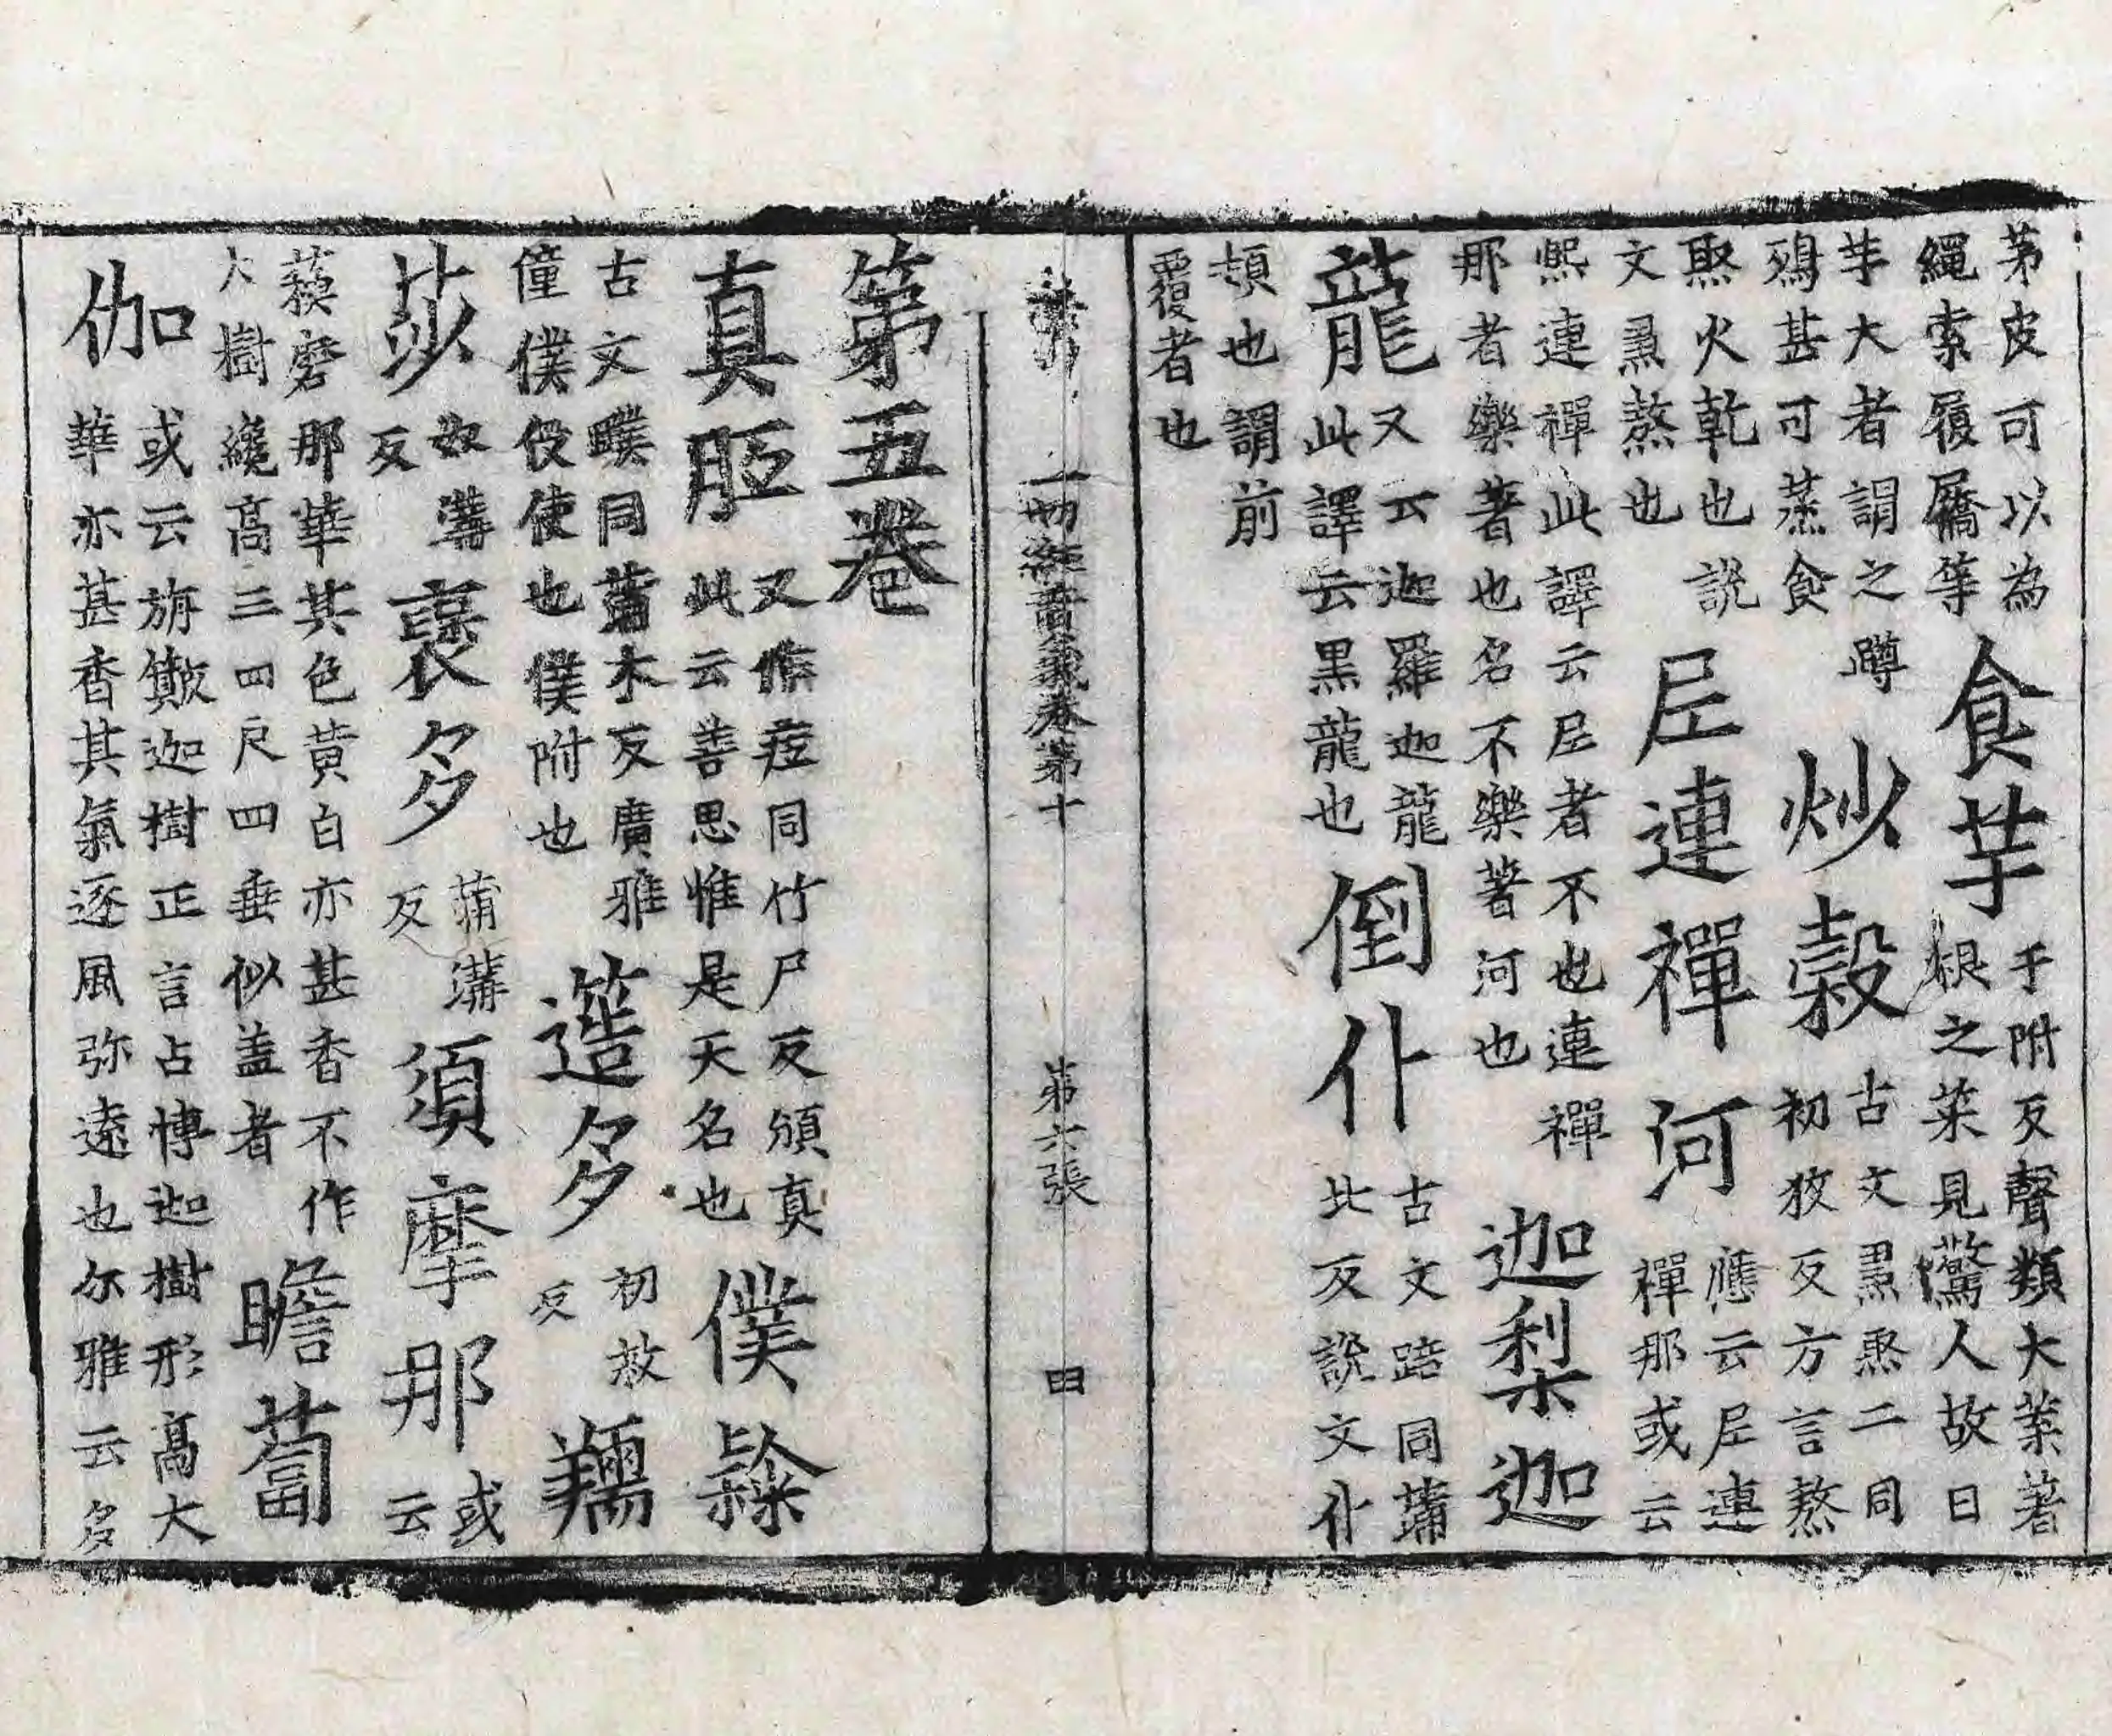 茅皮可以為
繩索履屩等
食芋
于附反聲類大葉著
根之菜見驚人故曰
芋大者謂之蹲
鴟甚可蒸食
炒穀
古文𤐫㷅二同
初狡反方言熬
聚火乾也說
文𤐫熬也
尼連禪河
應云尼連
禪那或云
熈連禪此譯云尼者不也連禪
那者樂著也名不樂著河也
迦梨迦
龍
又云迦羅迦龍
此譯云黒龍也
倒仆
古文踣同蒲
北反說文仆
頓也謂前
覆者也
一切經音義卷第十
第六張
第五卷
真䏂
又作痓同竹尸反頒真
此云善思惟是天名也
僕隸
古文䑑同蒲木反廣雅
僮僕役使也僕附也
簉多
初救
反
羺
莎
奴溝
反
裒多
蒲溝
反
須摩那
或
云
蘇磨那華其色黄白亦甚香不作
大樹纔高三四尺四垂似盖者
瞻蔔
伽
或云旃簸迦樹正言占博迦樹形高大
華亦甚香其氣逐風弥遠也尔雅云多